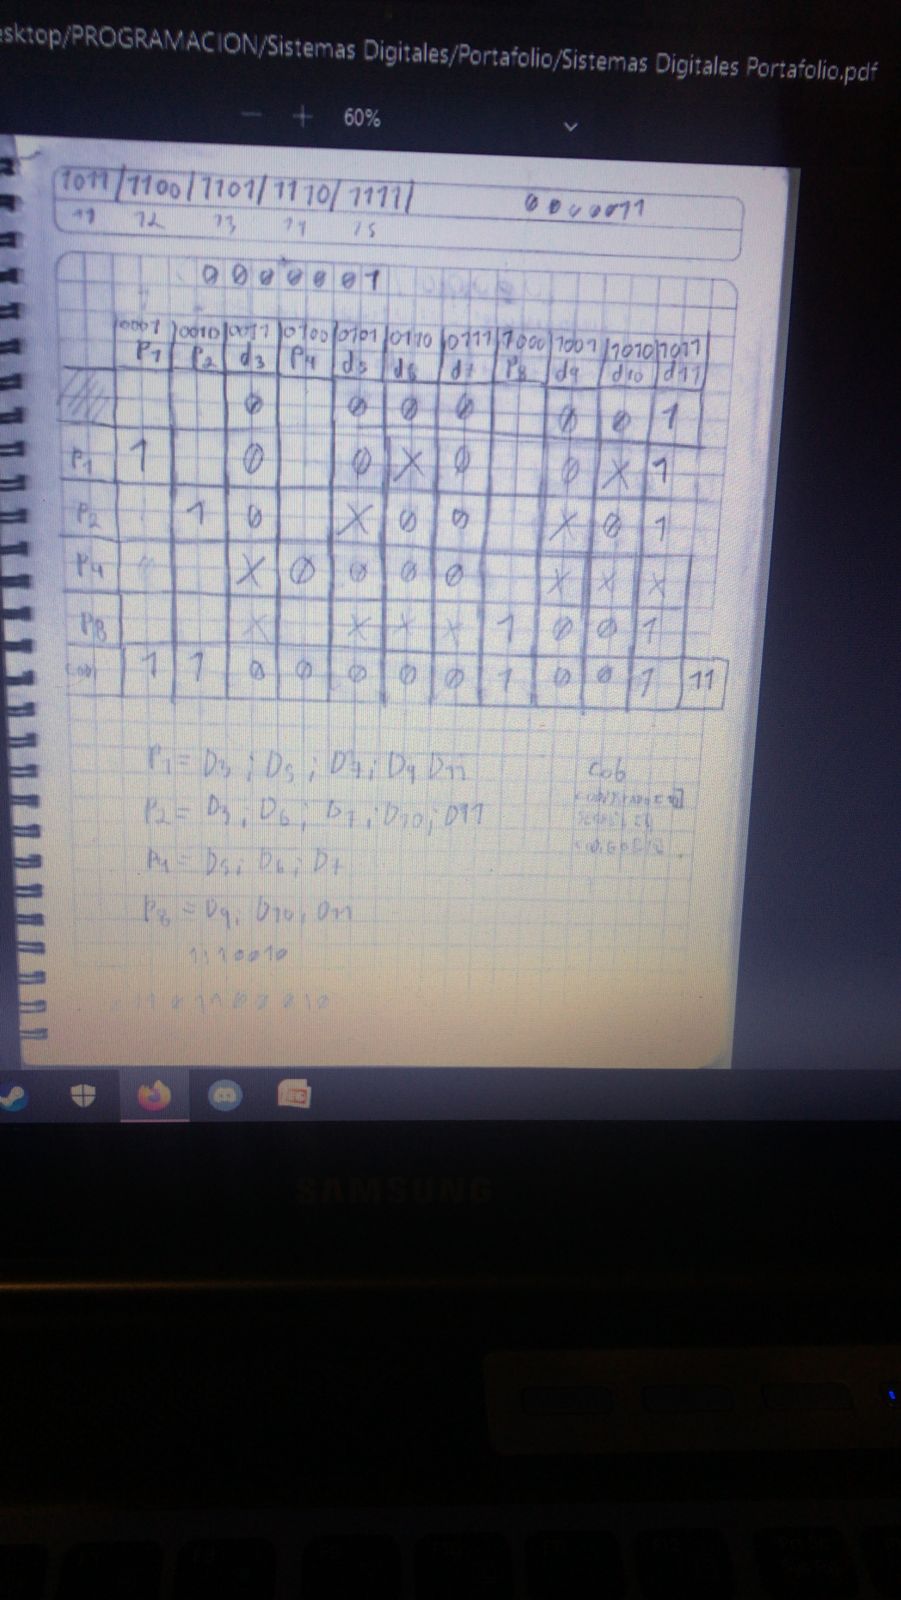 esktop/PROGRAMACION/Sistemas Digitales/Portafolio/Sistemas Digitales Portafolio.pdf
− + 60%
1011/1100/1101/1110/1111/ 0000011
11 12 13 14 15
0000001
0001 0010 0011 0100 0101 0110 0111 1000 1001 1010 1011
P1 P2 d3 P4 d5 d6 d7 P8 d9 d10 d11
0 0 0 0 0 0 1
P1 1 0 0 X 0 0 X 1
P2 1 0 X 0 0 X 0 1
P4 X 0 0 0 0 X X X
P8 X X X X 1 0 0 1
1 1 0 0 0 0 0 1 0 0 1 11
P1 = D3 ; D5 ; D7 ; D9 D11
P2 = D3 ; D6 ; D7 ; D10 ; D11
P4 = D5 ; D6 ; D7
P8 = D9, D10, D11
1110010
SAMSUNG